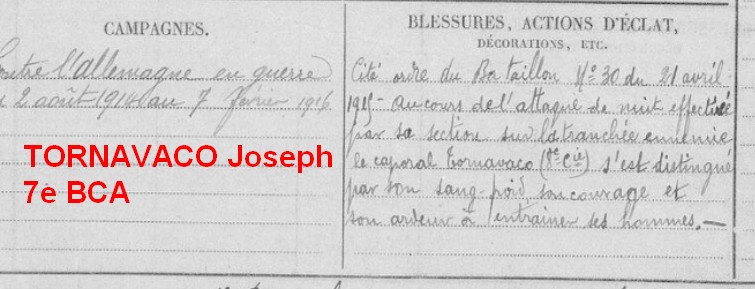 CAMPAGNES.
Contre l'allemagne en guerre
du 2 août 1914 au 7 février 1916.
TORNAVACO Joseph
7è BCA
BLESSURES, ACTIONS D'ÉCLAT,
DÉCORATIONS, ETC.
Cité ordre du Bataillon No 30 du 21 avril
1915 - Au cours de l'attaque de nuit effectuée
par sa section sur la tranchée ennemie
le caporal Tornavaco (8e Cie) s'est distingué
par son sang-froid, son courage et
son ardeur à entrainer ses hommes. —